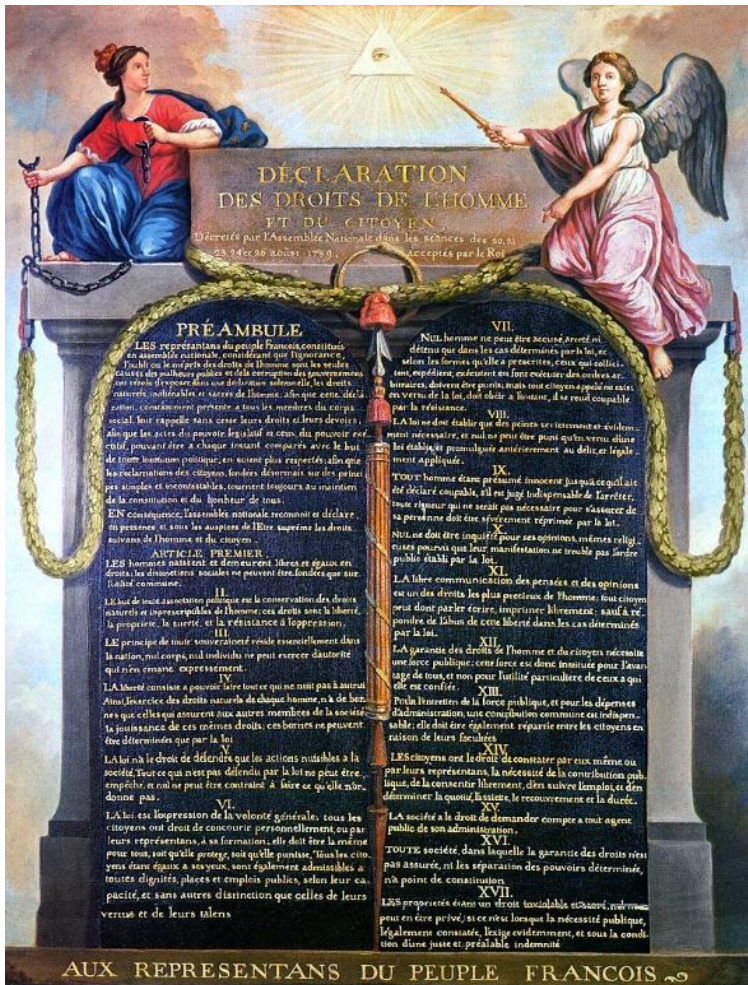 DÉCLARATION
DES DROITS DE L'HOMME
ET DU CITOYEN
Décretés par l'Assemblée Nationale dans les séances des 20, 21
23, 24 et 26 aoûst 1789, acceptés par le Roi
PRÉAMBULE
LES représantans du peuple François, constitués
en assemblée nationale, considérant que l'ignorance,
l'oubli ou le mépris des droits de l'homme sont les seules
causes des malheurs publics et de la corruption des gouvernemens
ont résolu d'exposer dans une déclaration solemnelle, les droits
naturels, inaliénables et sacrés de l'homme; afin que cette décla
ration, constamment présente a tous les membres du corps
social, leur rappelle sans cesse leurs droits et leurs devoirs;
afin que les actes du pouvoir legislatif et ceux du pouvoir exé
cutif, pouvant être a chaque instant comparés avec le but
de toute institution politique, en soient plus respectés; afin que
les reclamations des citoyens, fondées désormais sur des princi
pes simples et incontestables, tournent toujours au maintien
de la constitution et du bonheur de tous.
EN conséquence, l'assemblée nationale reconnoit et déclare,
en presence et sous les auspices de l'Etre suprême les droits
suivans de l'homme et du citoyen.
ARTICLE PREMIER.
LES hommes naissent et demeurent libres et égaux en
droits; les distinctions sociales ne peuvent être fondées que sur
l'utilité commune.
II.
LE but de toute association politique est la conservation des droits
naturels et imprescriptibles de l'homme; ces droits sont la liberté,
la propriete, la sureté, et la résistance à l'oppression.
III.
LE principe de toute souveraineté réside essentiellement dans
la nation, nul corps, nul individu ne peut exercer d'autorité
qui n'en émane expressement.
IV.
LA liberté consiste a pouvoir faire tout ce qui ne nuit pas à autrui
Ainsi, l'exercice des droits naturels de chaque homme, n'a de bor
nes que celles qui assurent aux autres membres de la société
la jouissance de ces mêmes droits; ces bornes ne peuvent
être déterminées que par la loi
V.
LA loi n'a le droit de défendre que les actions nuisibles a la
société. Tout ce qui n'est pas défendu par la loi ne peut être
empêché, et nul ne peut être contraint à faire ce qu'elle n'or
donne pas.
VI.
LA loi est l'expression de la volonté générale; tous les
citoyens ont droit de concourir personnellement, ou par
leurs représentans, à sa formation; elle doit être la même
pour tous, soit qu'elle protege, soit qu'elle punisse. Tous les cito
yens étant égaux à ses yeux, sont également admissibles à
toutes dignités, places et emplois publics, selon leur ca
pacité, et sans autres distinction que celles de leurs
vertus et de leurs talens
VII.
NUL homme ne peut être accusé, arreté ni
détenu que dans les cas déterminés par la loi, et
selon les formes qu'elle a prescrites, ceux qui sollici
tent, expédient, exécutent ou font exécuter des ordres ar
bitraires, doivent être punis; mais tout citoyen appelé ou saisi
en vertu de la loi, doit obéir a l'instant, il se rend coupable
par la résistance.
VIII.
LA loi ne doit établir que des peines strictement et évidem
ment nécessaire, et nul ne peut être puni qu'en vertu d'une
loi établie, et promulguée antérieurement au délit, et légale
ment appliquée.
IX.
TOUT homme étant présumé innocent jusqu'à ce qu'il ait
été déclaré coupable, s'il est jugé indispensable de l'arrêter,
toute rigueur qui ne serait pas nécessaire pour s'assurer de
sa personne doit être sévèrement réprimée par la loi.
X.
NUL ne doit être inquiété pour ses opinions, mêmes religi
euses pourvu que leur manifestation ne trouble pas l'ordre
public établi par la loi.
XI.
LA libre communication des pensées et des opinions
est un des droits les plus precieux de l'homme; tout citoyen
peut dont parler écrire, imprimer librement; sauf à ré
pondre de l'abus de cette liberté dans les cas déterminés
par la loi.
XII.
LA garantie des droits de l'homme et du citoyen nécessite
une force publique; cette force est donc instituée pour l'avan
tage de tous, et non pour l'utilité particuliere de ceux a qui
elle est confiée.
XIII.
Pour l'entretien de la force publique, et pour les dépenses
d'administration, une contribution commune est indispen
sable; elle doit être également répartie entre les citoyens en
raison de leurs facultées
XIV.
LES citoyens ont le droit de constater par eux même ou
par leurs représentans, la nécessité de la contribution pub
lique, de la consentir librement, d'en suivre l'emploi, et d'en
déterminer la quotité, l'assiette, le recouvrement et la durée.
XV.
LA société a le droit de demander compte a tout agent
public de son administration.
XVI.
TOUTE société, dans laquelle la garantie des droits n'est
pas assurée, ni les séparation des pouvoirs déterminée,
n'a point de constitution
XVII.
LES proprietés étant un droit inviolable et sacré, nul ne
peut en être privé, si ce n'est lorsque la nécessité publique,
légalement constatée, l'exige evidemment, et sous la condi
tion d'une juste et préalable indemnité
AUX REPRESENTANS DU PEUPLE FRANCOIS